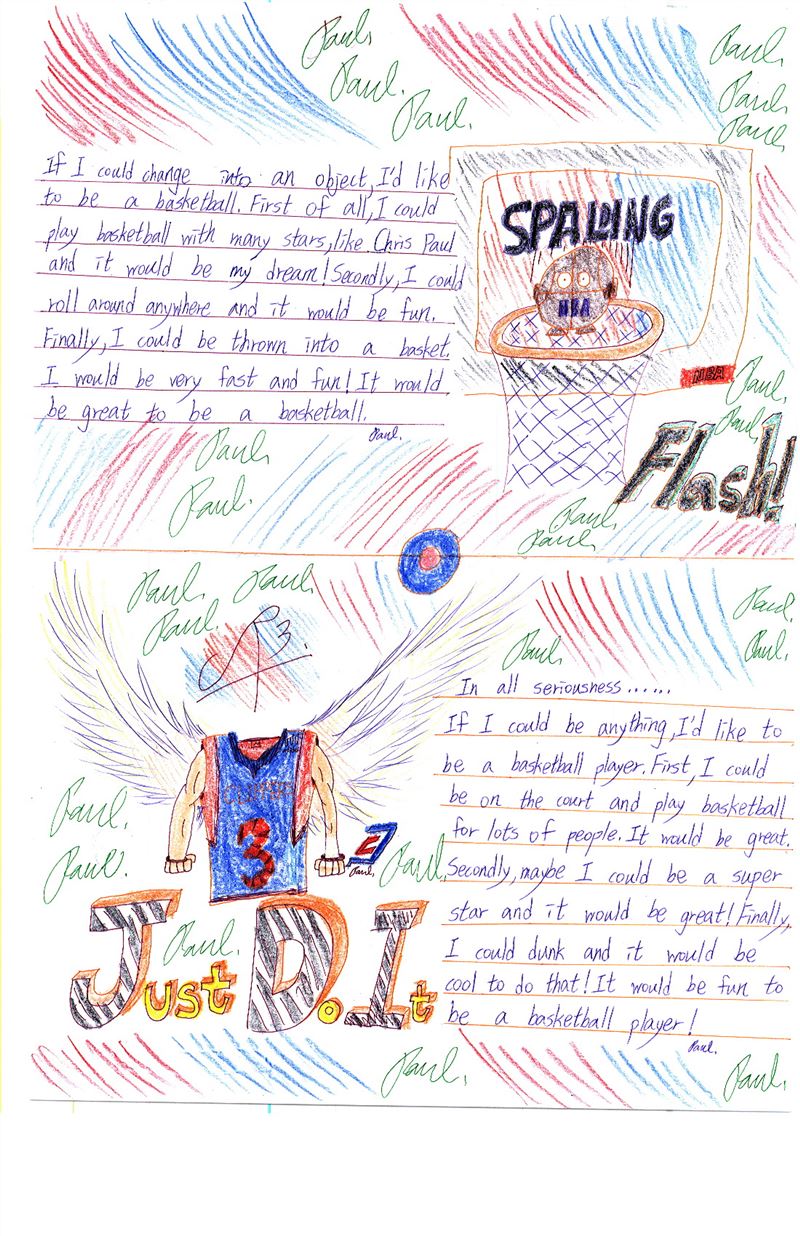 Paul.
Paul.
Paul.
Paul.
Paul.
Paul.
If I could change into an object, I'd like
to be a basketball. First of all, I could
play basketball with many stars, like Chris Paul
and it would be my dream! Secondly, I could
roll around anywhere and it would be fun.
Finally, I could be thrown into a basket.
I would be very fast and fun! It would
be great to be a basketball.
Paul.
SPALDING
NBA
NBA
Paul.
Paul.
Flash!
Paul.
Paul.
Paul.
Paul.
Paul.
Paul.
Paul.
Paul.
Paul.
Paul.
CLIPPERS
3
Paul.
Paul.
Paul.
Paul.
Paul.
Just Do It
In all seriousness......
If I could be anything, I'd like to
be a basketball player. First, I could
be on the court and play basketball
for lots of people. It would be great.
Secondly, maybe I could be a super
star and it would be great! Finally,
I could dunk and it would be
cool to do that! It would be fun to
be a basketball player!
Paul.
Paul.
Paul.